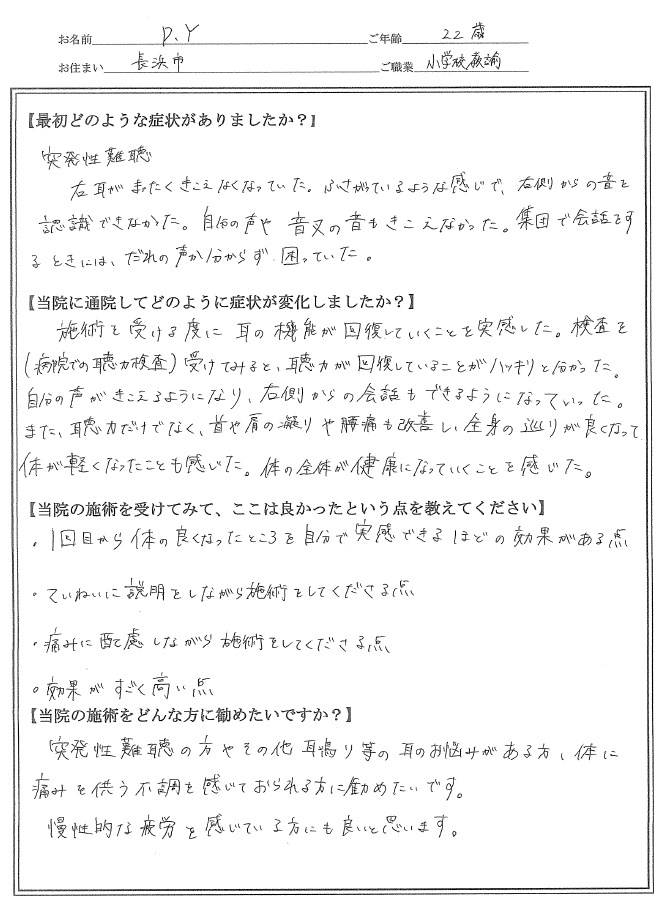 お名前 D.Y ご年齢 22歳
お住まい 長浜市 ご職業 小学校教諭
【最初どのような症状がありましたか？】
突発性難聴
右耳がまったくきこえなくなっていた。ふさがっているような感じで、右側からの音を
認識できなかった。自分の声や 音叉の音もきこえなかった。集団で会話をす
るときには、だれの声か分からず 困っていた。
【当院に通院してどのように症状が変化しましたか？】
施術を受ける度に 耳の機能が回復していくことを実感した。検査を
(病院での聴力検査)受けてみると、聴力が回復していることがハッキリと分かった。
自分の声がきこえるようになり、右側からの会話もできるようになっていった。
また、聴力だけでなく、首や肩の凝りや腰痛も改善し、全身の巡りが良くなって
体が軽くなったことも感じた。体の全体が健康になっていくことを感じた。
【当院の施術を受けてみて、ここは良かったという点を教えてください】
・1回目から体の良くなったところを自分で実感できるほどの効果がある点
・ていねいに説明をしながら施術をしてくださる点
・痛みに配慮しながら施術をしてくださる点
・効果がすごく高い点
【当院の施術をどんな方に勧めたいですか？】
突発性難聴の方やその他耳鳴り等の耳のお悩みがある方、体に
痛みを供う不調を感じておられる方に勧めたいです。
慢性的な疲労を感じている方にも良いと思います。